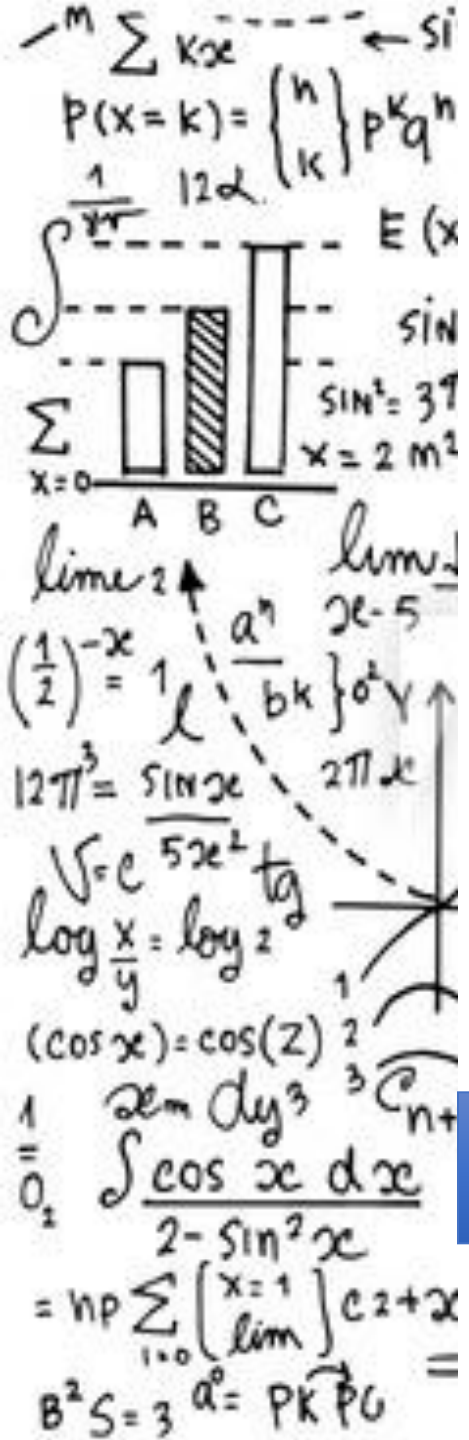 m ∑ kx ← si
P(x = k) = (n k) p^k q^n
1/√π 12α.
∫ E (x
sin
∑ sin² = 3π
x=0 x = 2 m²
A B C
lime 2 lim
x - 5
(1/2)^-x = 1 a^n/bk } 0² y
l
12π³ = sin x/5x² 2π x
V = c tg
log x/y = log 2
1
(cos x) = cos(Z) 2
xm dy³ 3 C n+
1 = 0₂ ∫ cos x dx / 2 - sin² x
= np ∑ i=0 (x = 1 lim) c 2 + x
=
B²S = 3 a⁰ = PK PC